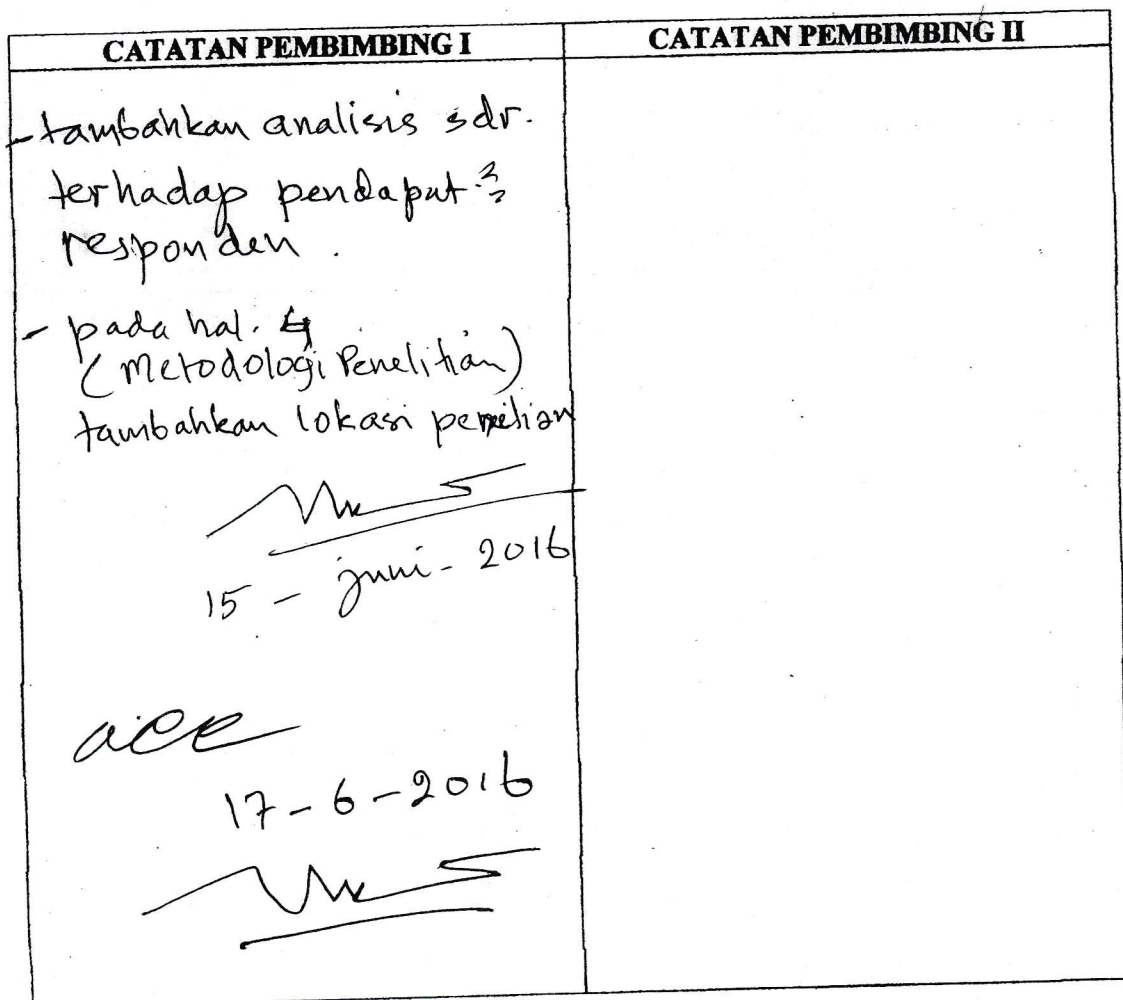 CATATAN PEMBIMBING I
CATATAN PEMBIMBING II
- tambahkan analisis sdr.
terhadap pendapat2
responden.
- pada hal. 4
(Metodologi Penelitian)
tambahkan lokasi penelitian
15 - juni - 2016
acc
17 - 6 - 2016